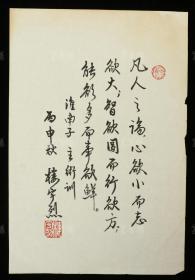 凡人之论心欲小而志
欲大，智欲圆而行欲方，
能欲多而事欲鲜。
淮南子 主術训
丙申秋 楼宇烈